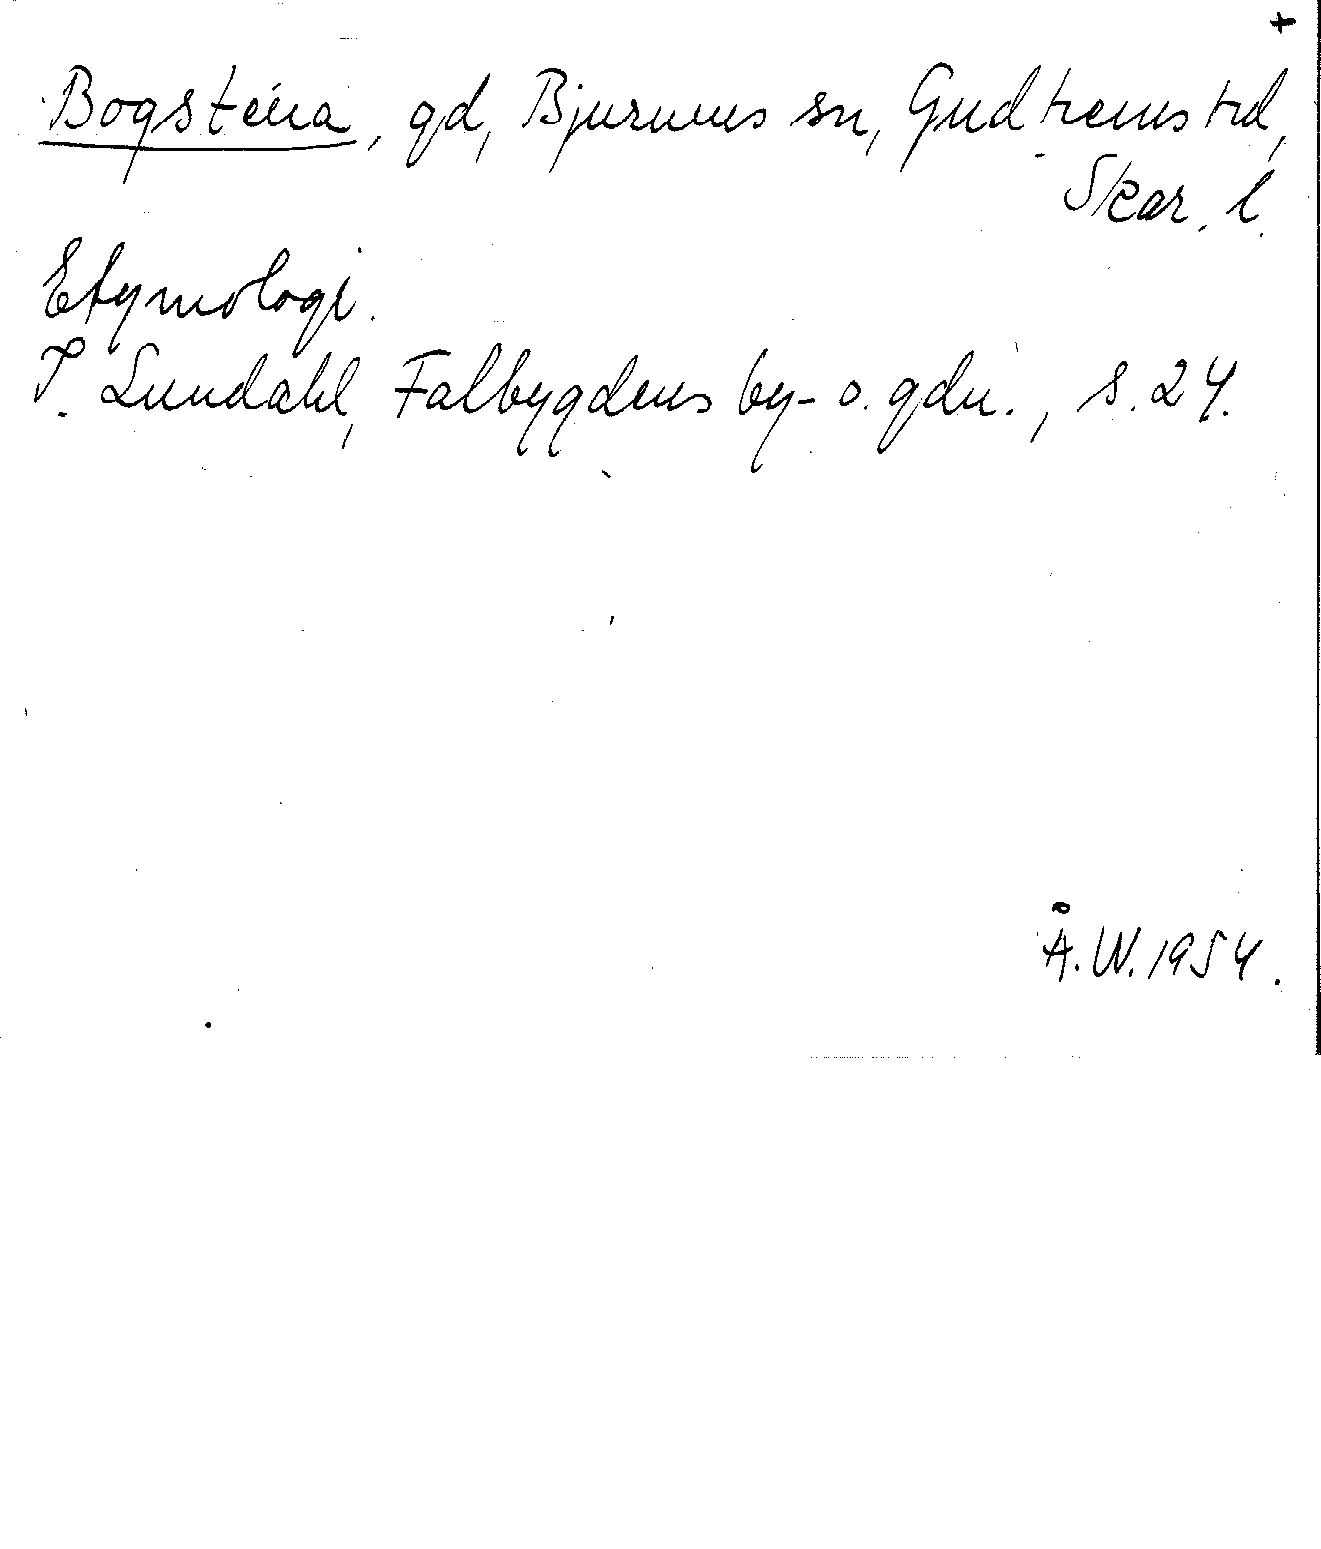 +
Bogstena, gd, Bjurums sn, Gudhems hd,
Skar. l.
Etymologi.
I. Lundahl, Falbygdens by- o. gdn., s. 24.
Å.W. 1954.